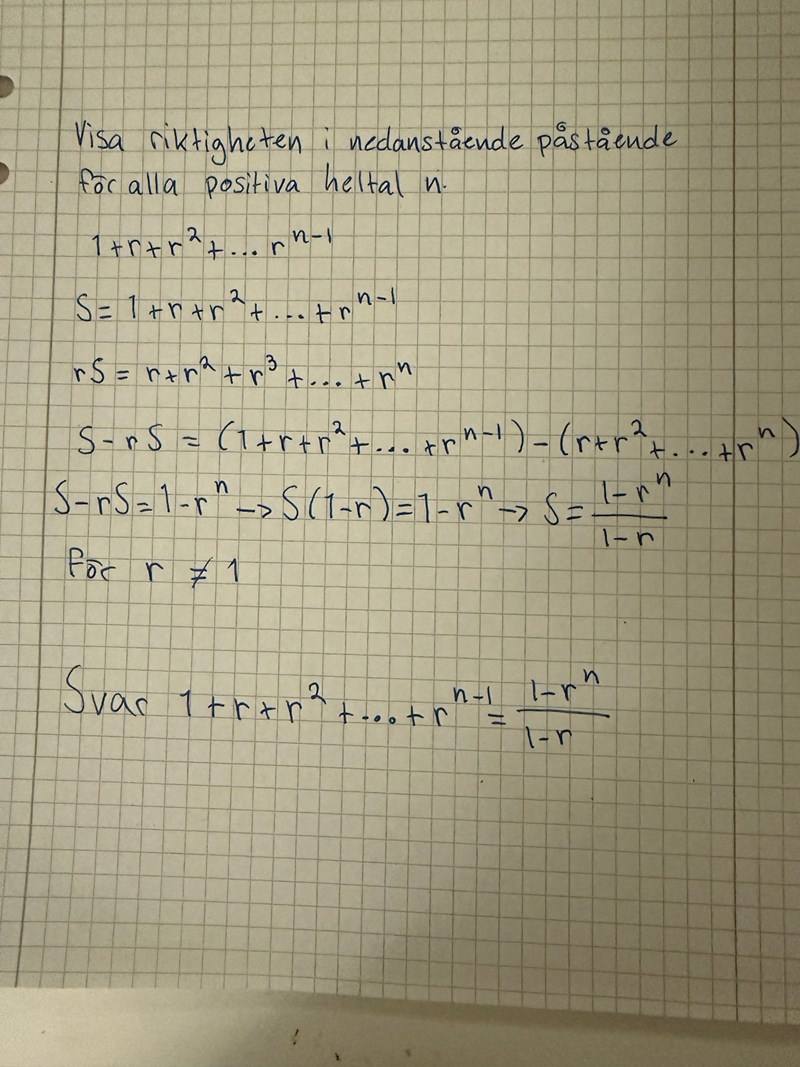 Visa riktigheten i nedanstående påstående
för alla positiva heltal n.
1+r+r²+... rⁿ⁻¹
S= 1+r+r²+...+rⁿ⁻¹
rS = r+r²+r³+...+rⁿ
S-rS = (1+r+r²+...+rⁿ⁻¹)-(r+r²+...+rⁿ)
S-rS=1-rⁿ -> S(1-r)=1-rⁿ -> S= (1-rⁿ)/(1-r)
för r ≠ 1
Svar 1+r+r²+...+rⁿ⁻¹= (1-rⁿ)/(1-r)